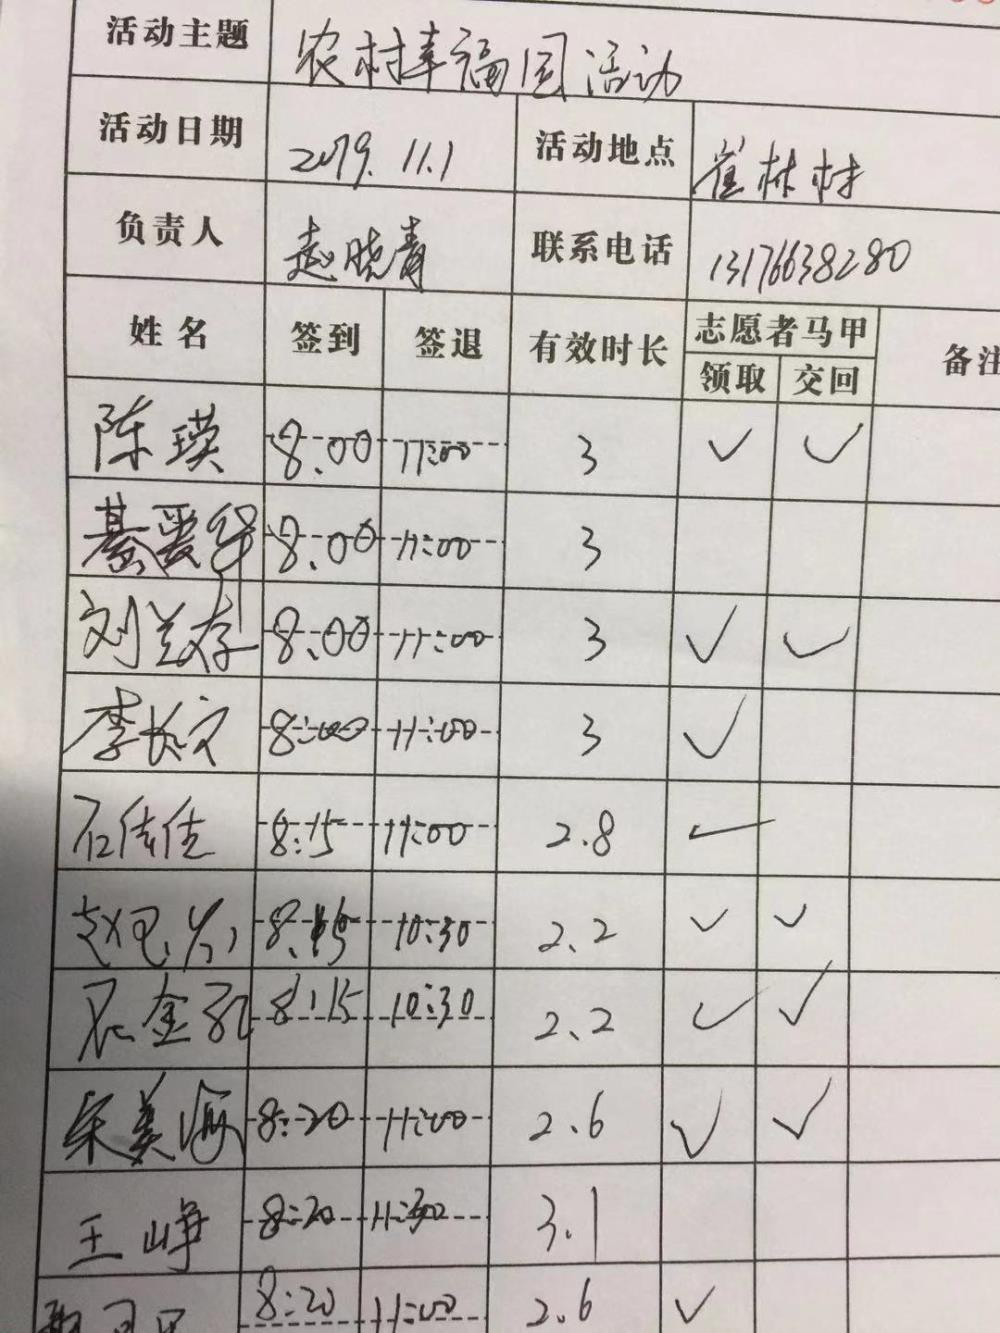 活动主题 农村幸福园活动
活动日期 2019.11.1 活动地点 崔林村
负责人 赵晓青 联系电话 13176638280
姓名 签到 签退 有效时长 志愿者马甲 备注
领取 交回
陈瑛 8:00 11:00 3 ✓ ✓
綦爱华 8:00 11:00 3
刘兰存 8:00 11:00 3 ✓ ✓
李长文 8:00 11:00 3 ✓
石佳佳 8:15 11:00 2.8 ✓
赵 8:15 10:30 2.2 ✓ ✓
金 8:15 10:30 2.2 ✓ ✓
宋美海 8:20 11:00 2.6 ✓ ✓
王峥 8:20 11:30 3.1
8:20 11:00 2.6 ✓